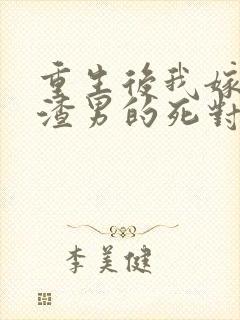 重生後我嫁
渣男的死對
李美健